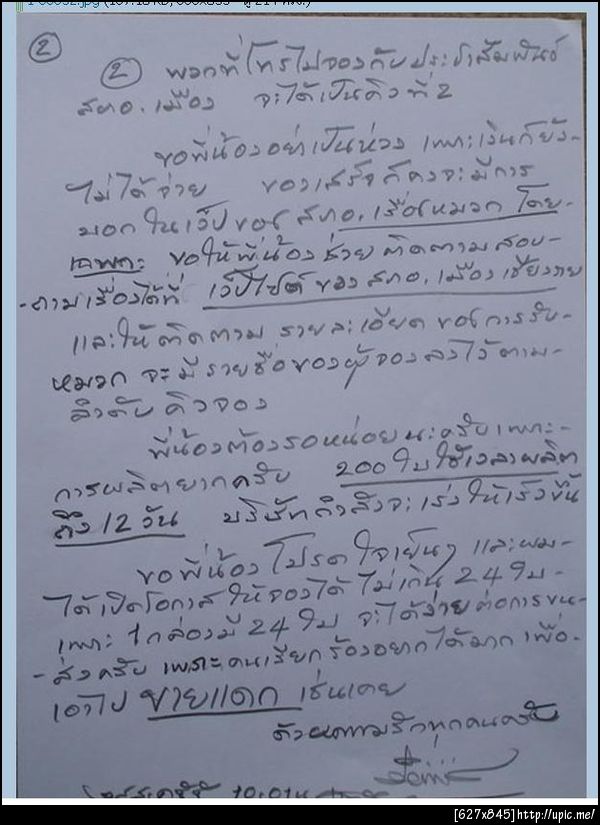 2
2 พวกที่โทรไปจองกับประชาสัมพันธ์
สภอ.เมือง จะได้เป็นคิวที่2
ขอพี่น้องอย่าเป็นห่วง เพราะเงินก็ยัง-
ไม่ได้จ่าย ของเสร็จก็คงจะมีการ
บอกในเว็ปของ สภอ.เรื่องหมวก โดย-
เฉพาะ ขอให้พี่น้องช่วยติดตามสอบ-
-ถามเรื่องได้ที่ เว็ปไซต์ของสภอ.เมืองเชียงราย
และให้ติดตาม รายละเอียด ของการรับ-
หมวก จะมีรายชื่อของผู้จองลงไว้ตาม-
ลำดับคิวจอง
พี่น้องต้องรอหน่อยนะครับเพราะ-
การผลิตยากครับ 200 ใบใช้เวลาผลิต
ถึง 12 วัน บริษัทกำลังจะเร่งให้เร็วขึ้น
ขอพี่น้องโปรดใจเย็นๆ และผม-
ได้เปิดโอกาสให้จองได้ ไม่เกิน 24 ใบ-
เพราะ 1กล่องมี 24 ใบ จะได้ง่ายต่อการขน-
-ส่งครับ เพราะคนเรียกร้องอยากได้มาก เพื่อ-
เอาไป ขายแดก เช่นเคย
ด้วยความรักทุกคนครับ
[627x845]http://upic.me/